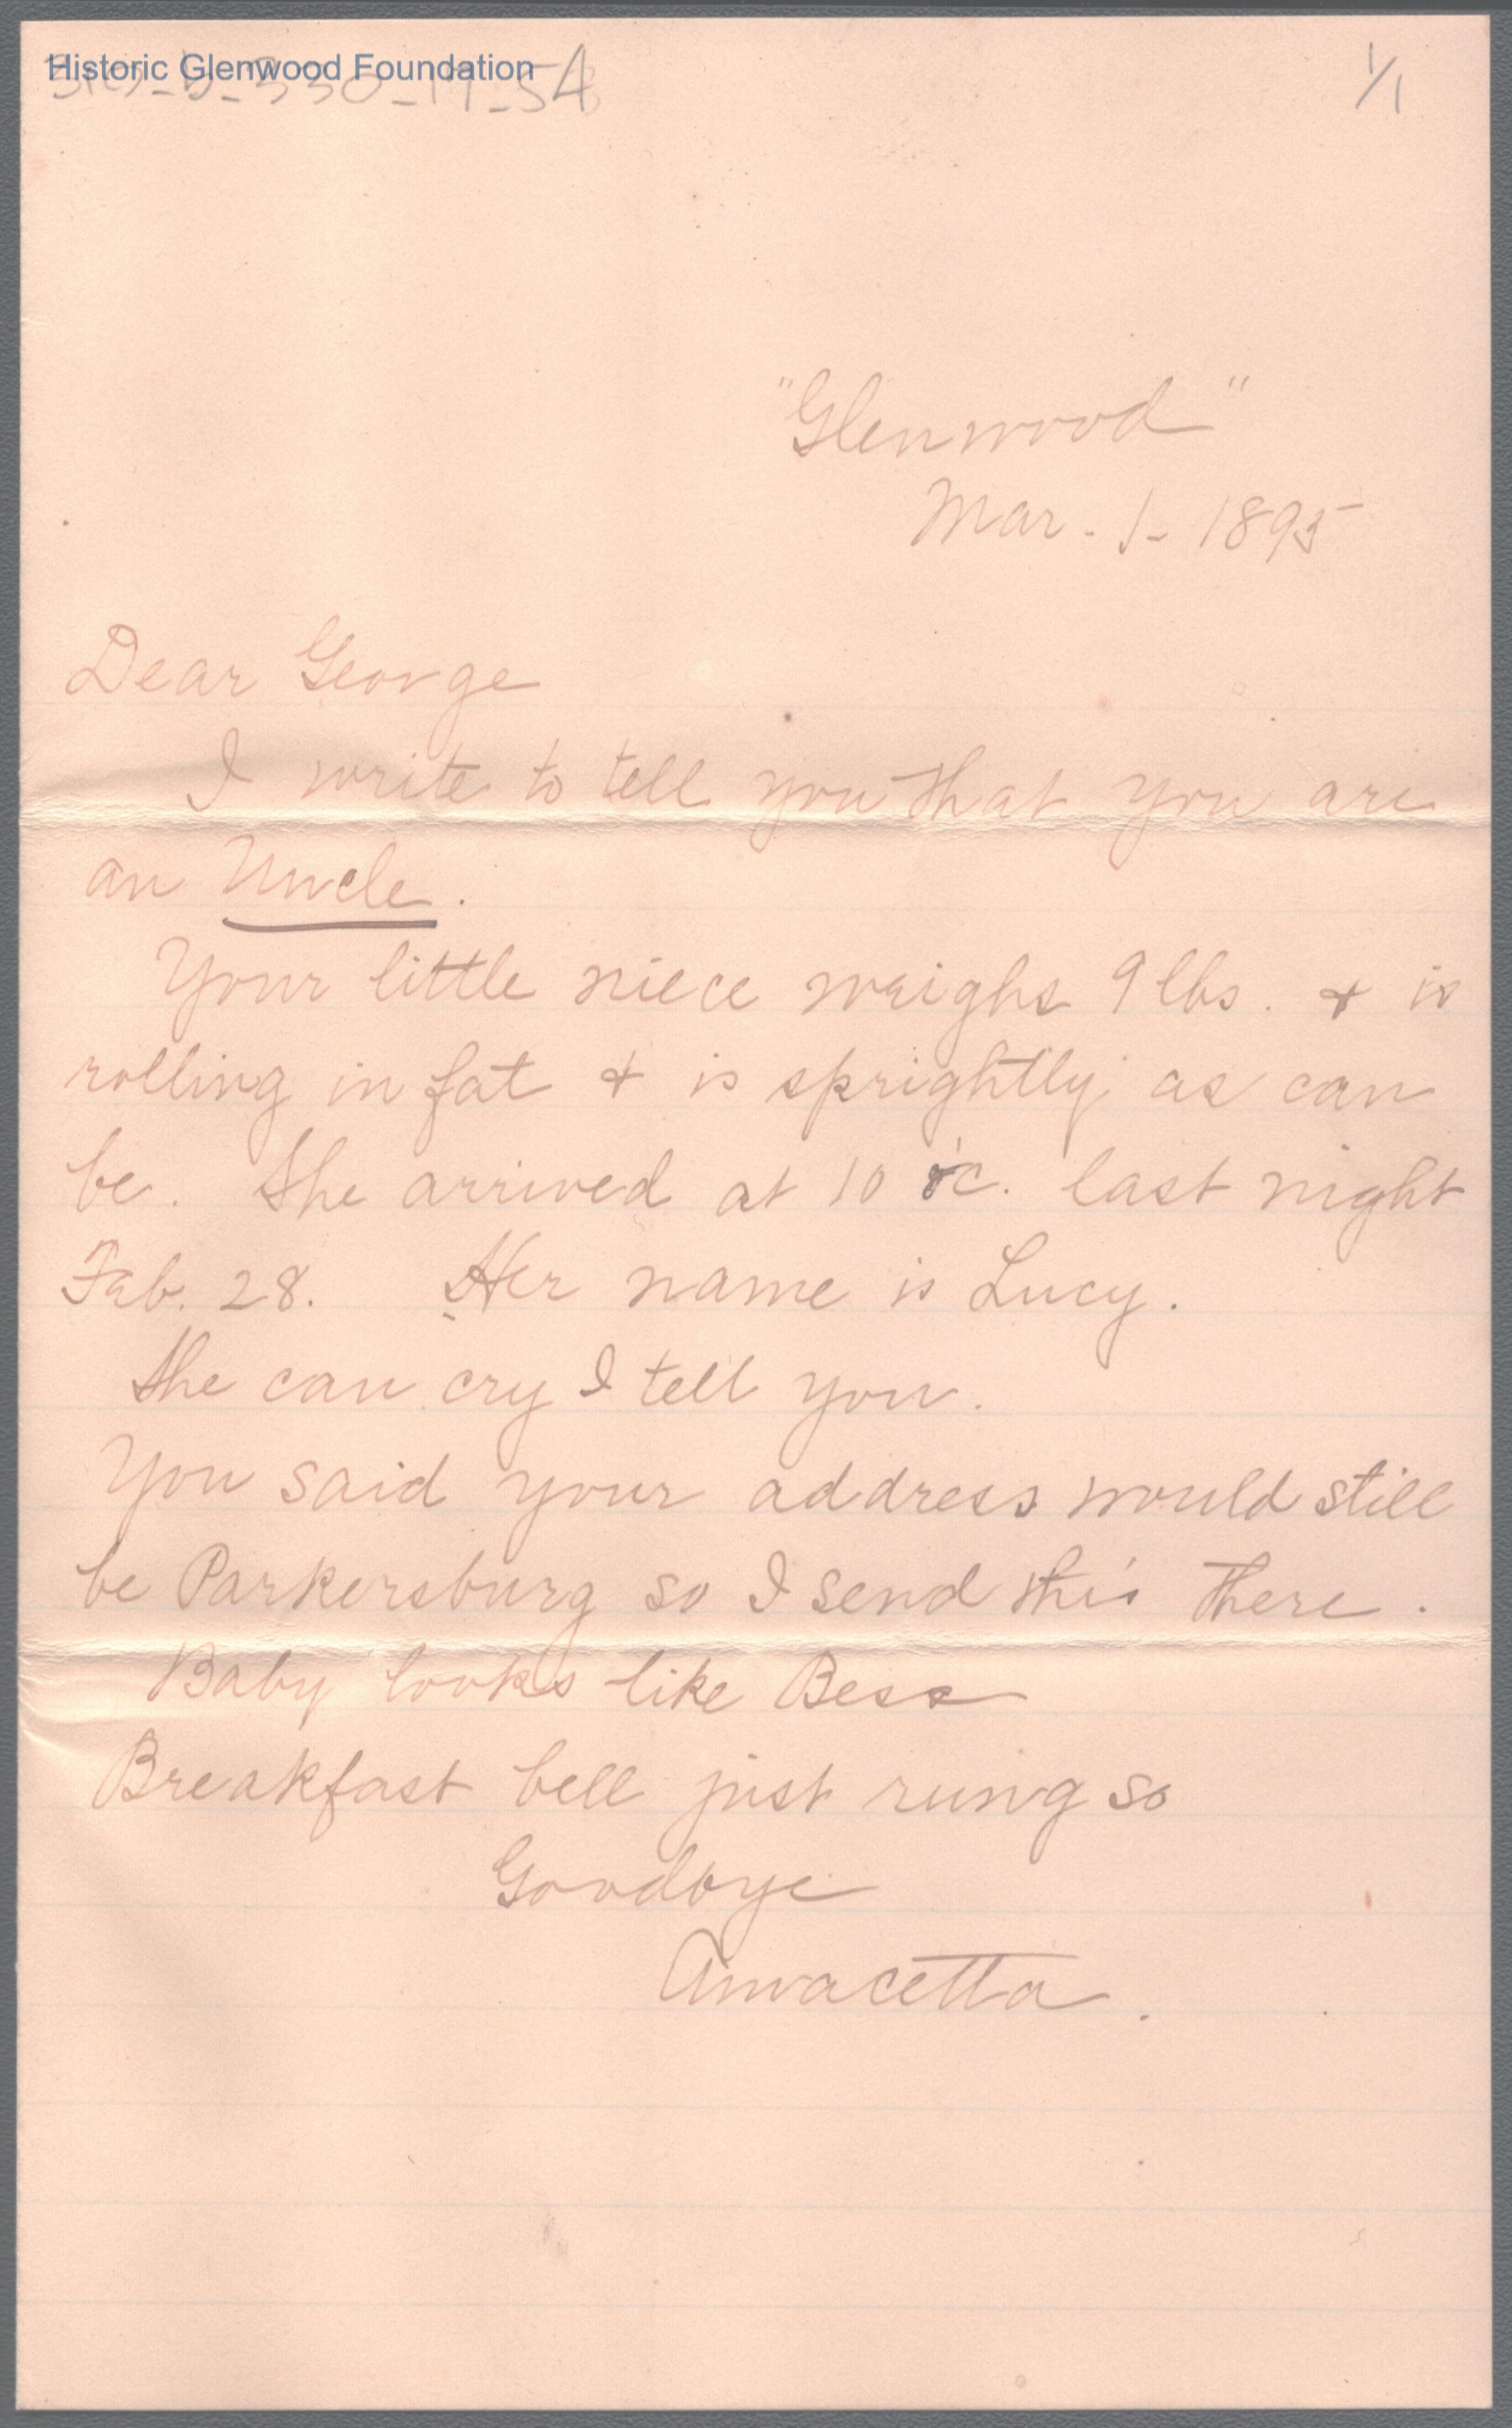 Historic Glenwood Foundation
1/1
"Glenwood"
Mar. - 1 - 1895
Dear George
I write to tell you that you are
an Uncle.
Your little niece weighs 9 lbs. & is
rolling in fat & is sprightly as can
be. She arrived at 10 o'c. last night
Feb. 28. Her name is Lucy.
She can cry I tell you.
You said your address would still
be Parkersburg so I send this there.
Baby looks like Bess
Breakfast bell just rung so
Goodbye
Annacetta.